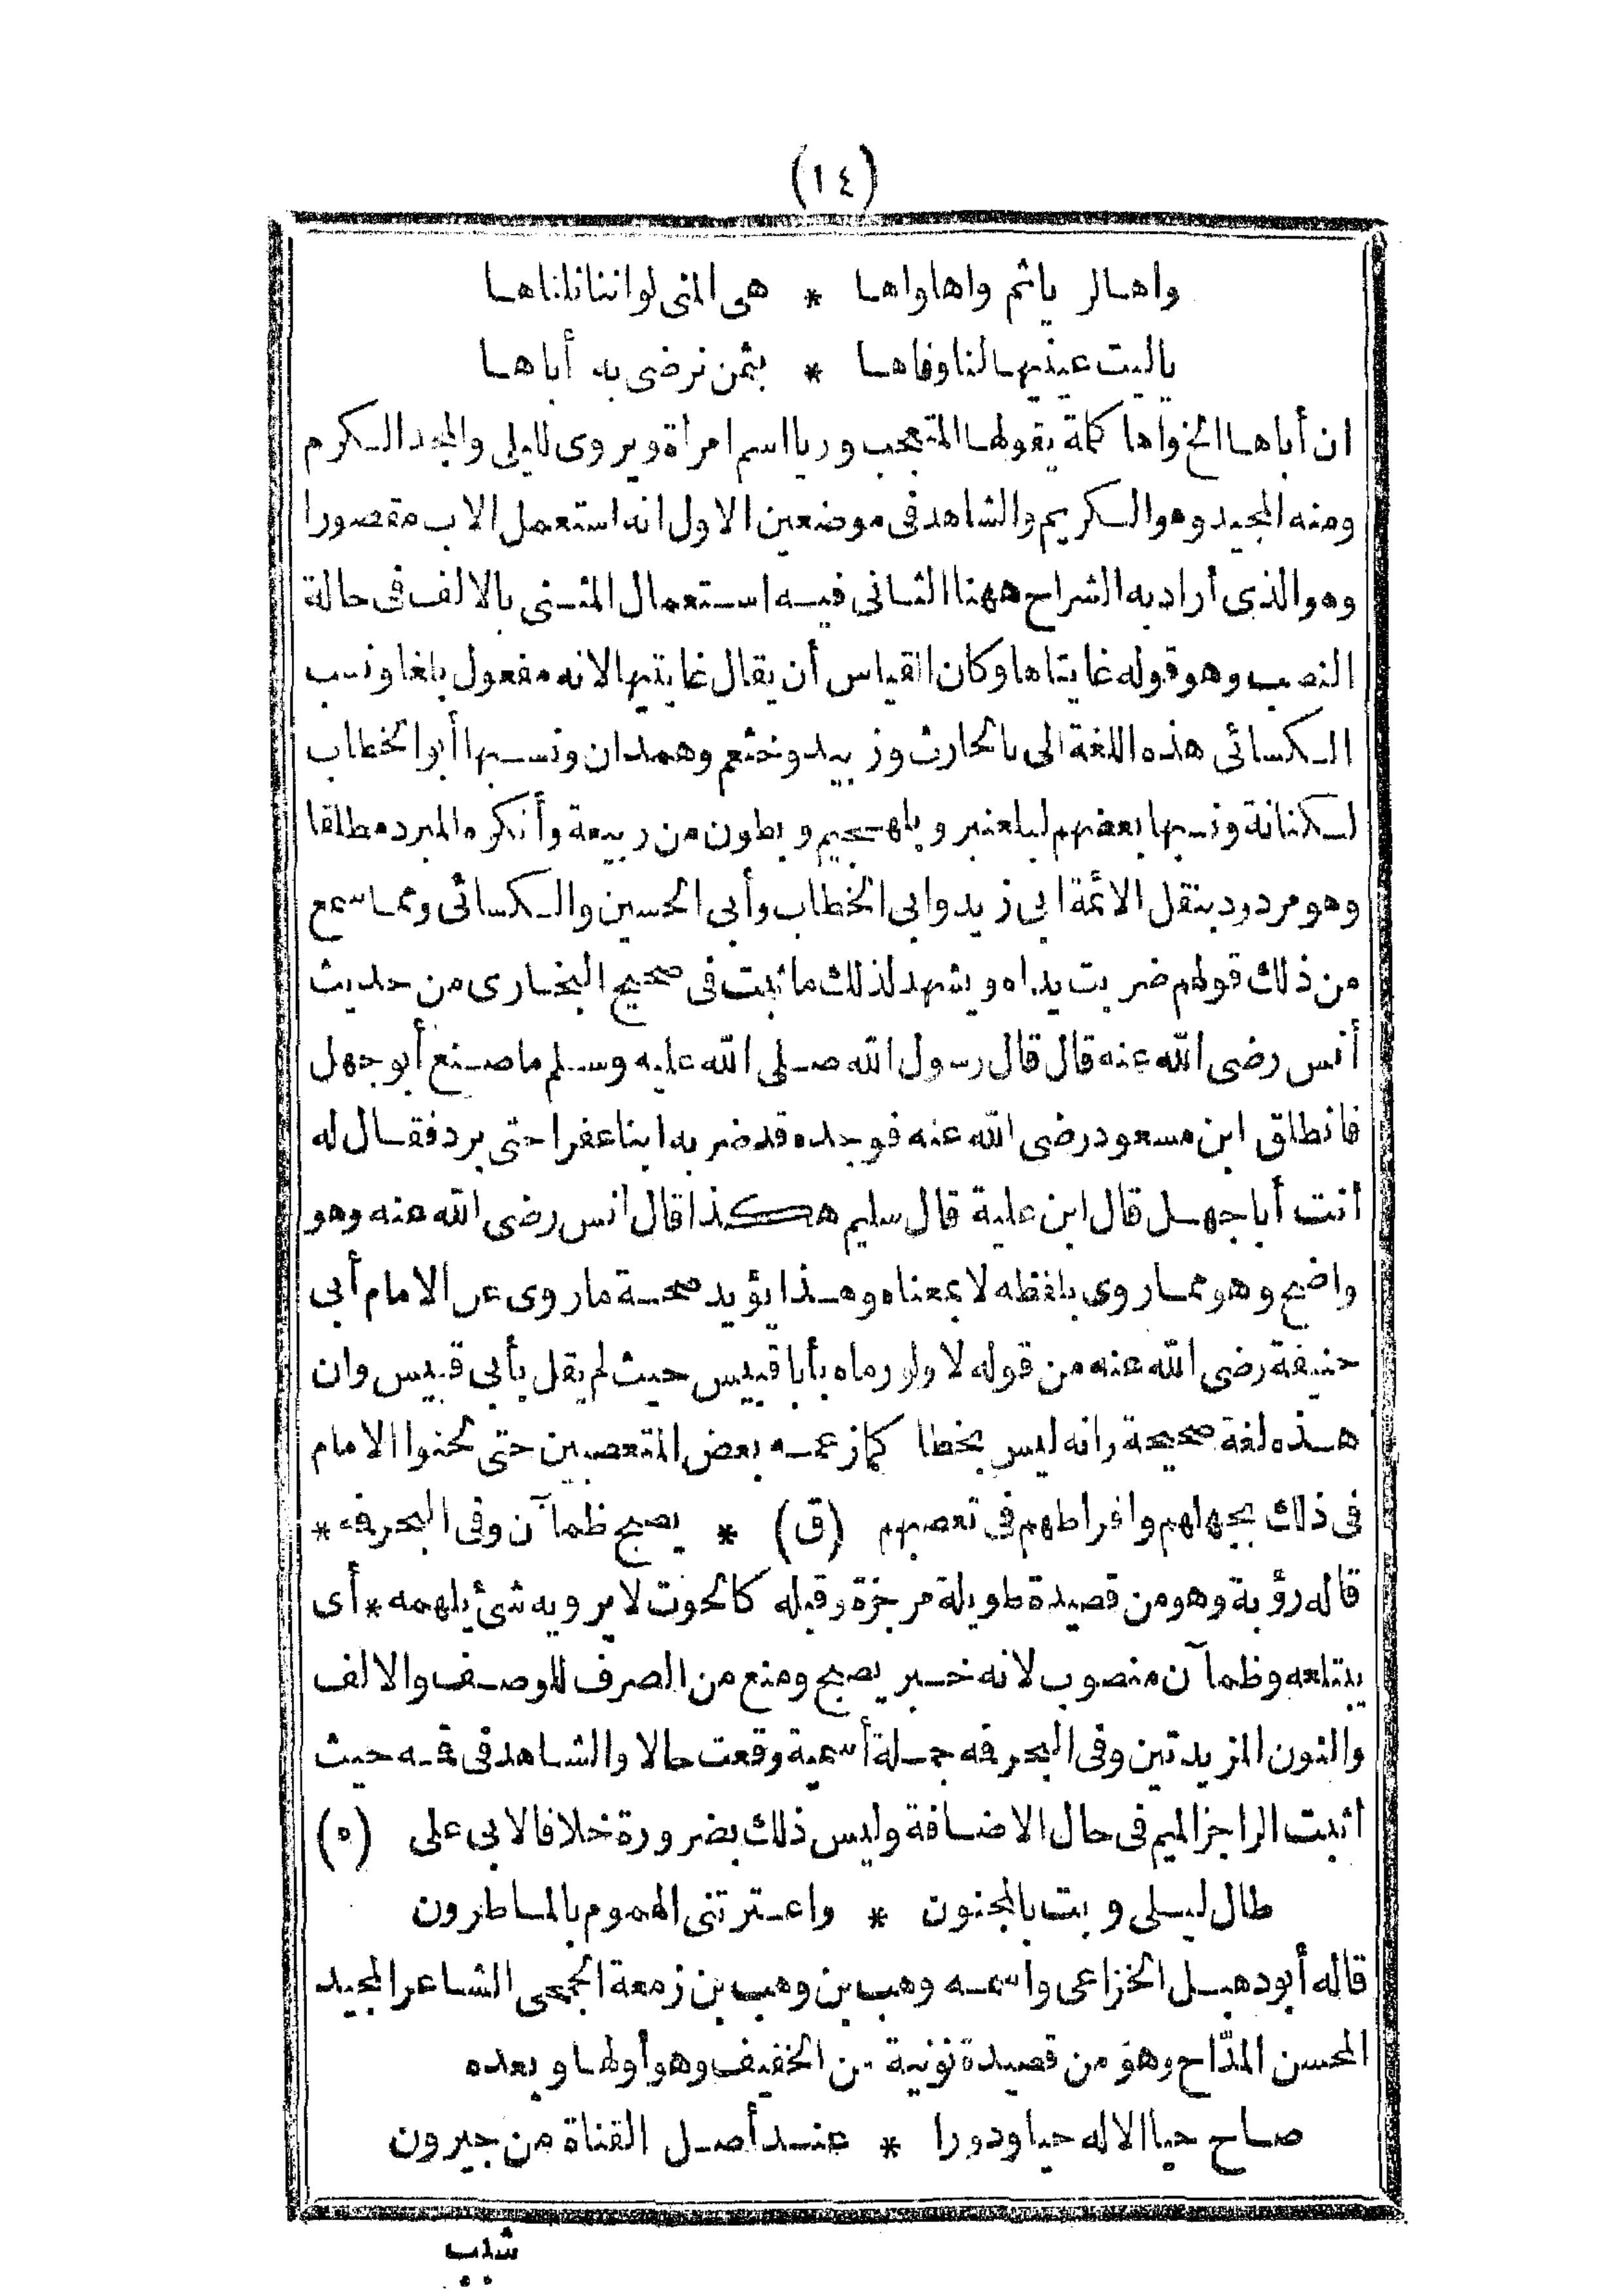 (١٤)
واهالر ياثم واهاواها * هى المنى لواننانلناها
ياليت عينيهالناوفاها * بثمن نرضى به أباها
ان أباها الخ واها كلمة يقولها المتعجب وريا اسم امرأة ويروى لليلى والمجد الكرم
ومنه المجيد وهو الكريم والشاهد فى موضعين الاول انه استعمل الاب مقصورا
وهو الذى أراد به الشراح ههنا الثانى فيه استعمال المثنى بالالف فى حالة
النصب وهو قوله غايتاها وكان القياس أن يقال غايتيها لانه مفعول بلغا ونسب
الكسائى هذه اللغة الى بالحارث وزبيد وخثعم وهمدان ونسبها أبو الخطاب
لكنانة ونسبها بعضهم لبلعنبر وبلهجيم وبطون من ربيعة وأنكره المبرد مطلقا
وهو مردود بنقل الائمة ابى زيد وابى الخطاب وأبى الحسين والكسائى ومما سمع
من ذلك قولهم ضربت يداه ويشهد لذلك ما ثبت فى صحيح البخارى من حديث
أنس رضى الله عنه قال قال رسول الله صلى الله عليه وسلم ما صنع أبو جهل
فانطلق ابن مسعود رضى الله عنه فوجده قد ضربه ابنا عفرا حتى برد فقال له
أنت أبا جهل قال ابن علية قال سليم هكذا قال انس رضى الله عنه وهو
واضح وهو مما روى بلفظه لا بمعناه وهذا يؤيد صحة ما روى عن الامام أبى
حنيفة رضى الله عنه من قوله لا ولو رماه بأبا قبيس حيث لم يقل بأبى قبيس وان
هذه لغة صحيحة وانه ليس بخطا كما زعمه بعض المتعصبين حتى لحنوا الامام
فى ذلك بجهلهم وافراطهم فى تعصبهم (ق) * يصبح ظمآن وفى البحر فمه *
قاله رؤبة وهو من قصيدة طويلة مرجزة وقبله كالحوت لا يرويه شئ يلهمه * أى
يبتلعه وظمآن منصوب لانه خبر يصبح ومنع من الصرف للوصف والالف
والنون المزيدتين وفى البحر فمه جملة أسمية وقعت حالا والشاهد فى فمه حيث
اثبت الراجز الميم فى حال الاضافة وليس ذلك بضرورة خلافا لابى على (ه)
طال ليلى وبت بالمجنون * واعترتنى الهموم بالماطرون
قاله أبو دهبل الخزاعى واسمه وهب بن وهب بن زمعة الجمحى الشاعر المجيد
المحسن المدّاح وهو من قصيدة نونية من الخفيف وهو أولها وبعده
صاح حيا الاله حيا ودورا * عند أصل القناة من جيرون